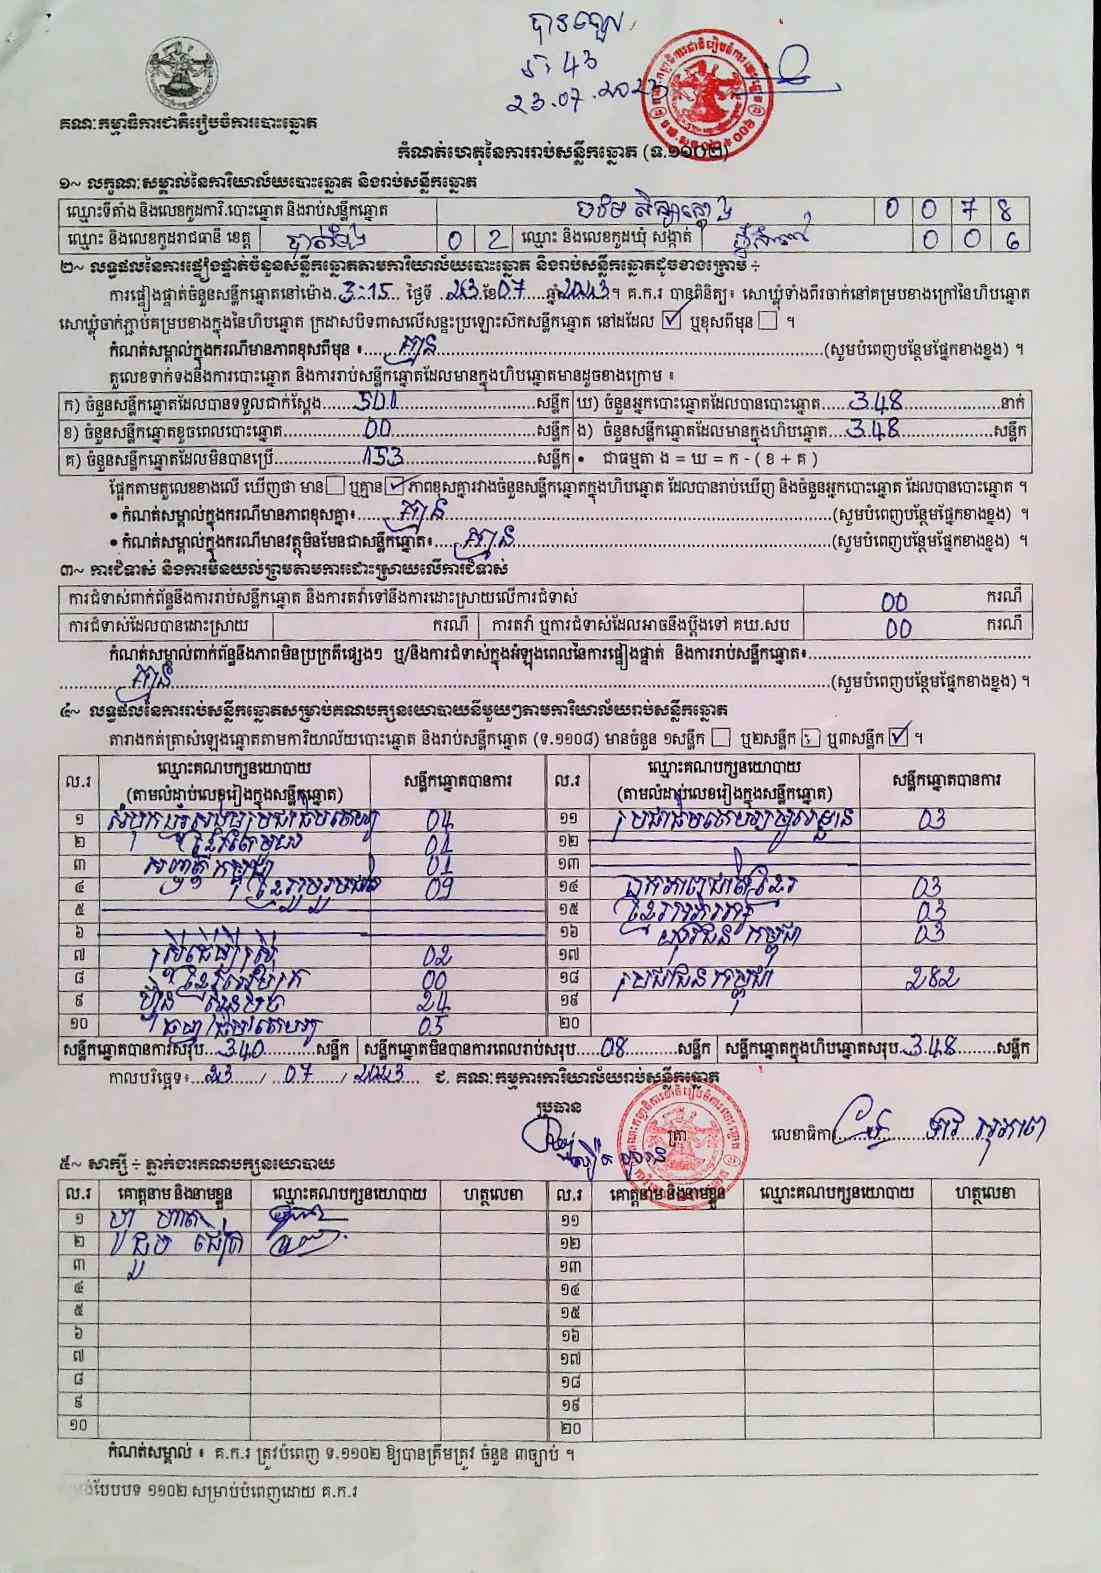 បានចូល
ម៉ោ 43
23.07.2023
គណៈកម្មាធិការជាតិរៀបចំការបោះឆ្នោត
កំណត់ហេតុនៃការរាប់សន្លឹកឆ្នោត (ទ.១១០២)
១~ លក្ខណៈសម្គាល់នៃការិយាល័យបោះឆ្នោត និងរាប់សន្លឹកឆ្នោត
ឈ្មោះទីតាំង និងលេខកូដការិ.បោះឆ្នោត និងរាប់សន្លឹកឆ្នោត 0 0 7 8
ឈ្មោះ និងលេខកូដរាជធានី ខេត្ត បាត់ដំបង 0 2 ឈ្មោះ និងលេខកូដឃុំ សង្កាត់ 0 0 6
២~ លទ្ធផលនៃការផ្ទៀងផ្ទាត់ចំនួនសន្លឹកឆ្នោតតាមការិយាល័យបោះឆ្នោត និងរាប់សន្លឹកឆ្នោតដូចខាងក្រោម ÷
ការផ្ទៀងផ្ទាត់ចំនួនសន្លឹកឆ្នោតនៅម៉ោង.3:15... ថ្ងៃទី .23.ខែ07.....ឆ្នាំ2023។ គ.ក.រ បានពិនិត្យ៖ សោឃ្លុំទាំងពីរចាក់នៅគម្របខាងក្រៅនៃហិបឆ្នោត
សោឃ្លុំចាក់ភ្ជាប់គម្របខាងក្នុងនៃហិបឆ្នោត ក្រដាសបិទពាសលើសន្ទះប្រឡោះស៊កសន្លឹកឆ្នោត នៅដដែល ☑ ឬខុសពីមុន ☐ ។
កំណត់សម្គាល់ក្នុងករណីមានភាពខុសពីមុន ៖......គ្មាន......(សូមបំពេញបន្ថែមផ្នែកខាងខ្នង) ។
តួលេខទាក់ទងនឹងការបោះឆ្នោត និងការរាប់សន្លឹកឆ្នោតដែលមានក្នុងហិបឆ្នោតមានដូចខាងក្រោម ៖
ក) ចំនួនសន្លឹកឆ្នោតដែលបានទទួលជាក់ស្តែង......501......សន្លឹក ឃ) ចំនួនអ្នកបោះឆ្នោតដែលបានបោះឆ្នោត.....348......នាក់
ខ) ចំនួនសន្លឹកឆ្នោតខូចពេលបោះឆ្នោត......00......សន្លឹក ង) ចំនួនសន្លឹកឆ្នោតដែលមានក្នុងហិបឆ្នោត...348......សន្លឹក
គ) ចំនួនសន្លឹកឆ្នោតដែលមិនបានប្រើ......153......សន្លឹក • ជាធម្មតា ង = ឃ = ក - ( ខ + គ )
ផ្អែកតាមតួលេខខាងលើ ឃើញថា មាន ☐ ឬគ្មាន ☑ ភាពខុសគ្នារវាងចំនួនសន្លឹកឆ្នោតក្នុងហិបឆ្នោត ដែលបានរាប់ឃើញ និងចំនួនអ្នកបោះឆ្នោត ដែលបានបោះឆ្នោត ។
• កំណត់សម្គាល់ក្នុងករណីមានភាពខុសគ្នា៖......គ្មាន......(សូមបំពេញបន្ថែមផ្នែកខាងខ្នង) ។
• កំណត់សម្គាល់ក្នុងករណីមានវត្ថុមិនមែនជាសន្លឹកឆ្នោត៖....គ្មាន......(សូមបំពេញបន្ថែមផ្នែកខាងខ្នង) ។
៣~ ការជំទាស់ និងការមិនយល់ព្រមតាមការដោះស្រាយលើការជំទាស់
ការជំទាស់ពាក់ព័ន្ធនឹងការរាប់សន្លឹកឆ្នោត និងការតវ៉ាទៅនឹងការដោះស្រាយលើការជំទាស់ 00 ករណី
ការជំទាស់ដែលបានដោះស្រាយ ករណី ការតវ៉ា ឬការជំទាស់ដែលអាចនឹងប្តឹងទៅ គឃ.សប 00 ករណី
កំណត់សម្គាល់ពាក់ព័ន្ធនឹងភាពមិនប្រក្រតីផ្សេងៗ ឬ/និងការជំទាស់ក្នុងអំឡុងពេលនៃការផ្ទៀងផ្ទាត់ និងការរាប់សន្លឹកឆ្នោត៖......
......គ្មាន......(សូមបំពេញបន្ថែមផ្នែកខាងខ្នង) ។
៤~ លទ្ធផលនៃការរាប់សន្លឹកឆ្នោតសម្រាប់គណបក្សនយោបាយនីមួយៗតាមការិយាល័យរាប់សន្លឹកឆ្នោត
តារាងកត់ត្រាសំឡេងឆ្នោតតាមការិយាល័យបោះឆ្នោត និងរាប់សន្លឹកឆ្នោត (ទ.១១០៨) មានចំនួន ១សន្លឹក ☐ ឬ២សន្លឹក ☐ ឬ៣សន្លឹក ☑ ។
ល.រ ឈ្មោះគណបក្សនយោបាយ (តាមលំដាប់លេខរៀងក្នុងសន្លឹកឆ្នោត) សន្លឹកឆ្នោតបានការ ល.រ ឈ្មោះគណបក្សនយោបាយ (តាមលំដាប់លេខរៀងក្នុងសន្លឹកឆ្នោត) សន្លឹកឆ្នោតបានការ
១ សំបុកឃ្មុំសង្គមប្រជាធិបតេយ្យ 04 ១១ ប្រជាធិបតេយ្យមូលដ្ឋាន 03
២ ខ្មែរតែមួយ 01 ១២
៣ សញ្ជាតិកម្ពុជា 01 ១៣
៤ ខ្មែររួបរួមជាតិ 09 ១៤ ឯកភាពជាតិខ្មែរ 03
៥ ១៥ 03
៦ ១៦ យុវជនកម្ពុជា 03
៧ 02 ១៧
៨ 00 ១៨ ប្រជាជនកម្ពុជា 282
៩ ហ្វ៊ុនស៊ិនប៉ិច 24 ១៩
១០ 05 ២០
សន្លឹកឆ្នោតបានការសរុប..340......សន្លឹក សន្លឹកឆ្នោតមិនបានការពេលរាប់សរុប....08......សន្លឹក សន្លឹកឆ្នោតក្នុងហិបឆ្នោតសរុប..348......សន្លឹក
កាលបរិច្ឆេទ៖..23..../..07..../..2023... ជ. គណៈកម្មការការិយាល័យរាប់សន្លឹកឆ្នោត
ប្រធាន
ត្រា
លេខាធិការ
៥~ សាក្សី ÷ ភ្នាក់ងារគណបក្សនយោបាយ
ល.រ គោត្តនាម និងនាមខ្លួន ឈ្មោះគណបក្សនយោបាយ ហត្ថលេខា ល.រ គោត្តនាម និងនាមខ្លួន ឈ្មោះគណបក្សនយោបាយ ហត្ថលេខា
១ ១១
២ ១២
៣ ១៣
៤ ១៤
៥ ១៥
៦ ១៦
៧ ១៧
៨ ១៨
៩ ១៩
១០ ២០
កំណត់សម្គាល់ ៖ គ.ក.រ ត្រូវបំពេញ ទ.១១០២ ឱ្យបានត្រឹមត្រូវ ចំនួន ៣ច្បាប់ ។
បែបបទ ១១០២ សម្រាប់បំពេញដោយ គ.ក.រ